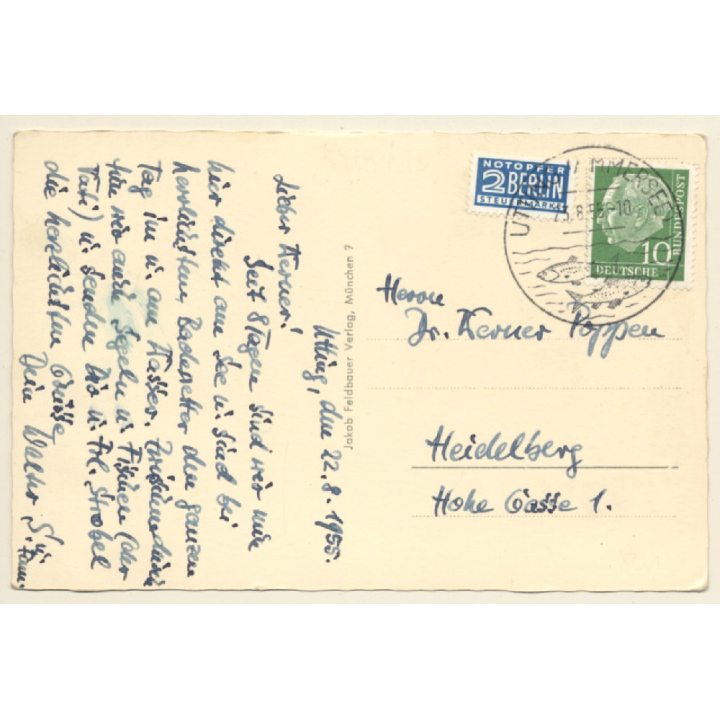 NOTOPFER
2 BERLIN
STEUERMARKE
UTTING AMMERSEE
23.8.55-10
10
DEUTSCHE
BUNDESPOST
Utting, den 22.8.1955.
Lieber Kerner!
Seit 8 Tagen sind wir nun
hier direkt am See u. sind bei
herrlichstem Badewetter den ganzen
Tag im u. am Wasser. Zwischendurch
tun wir auch Segeln u. Fischen (der
Tati) u. senden Dir u. Frl. Strobel
die herzlichsten Grüsse
Dein Walter S. u.
Fam.
Jakob Feldbauer Verlag, München 9
Herrn
Dr. Kerner Poppen
Heidelberg
Hohe Gasse 1.